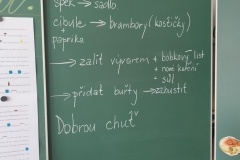 špek → sádlo
cibule → brambory (kostičky)
+
paprika
→ zalít vývarem + bobkový list
+ nové koření
+ sůl
→ přidat buřty → zahustit
Dobrou chuť